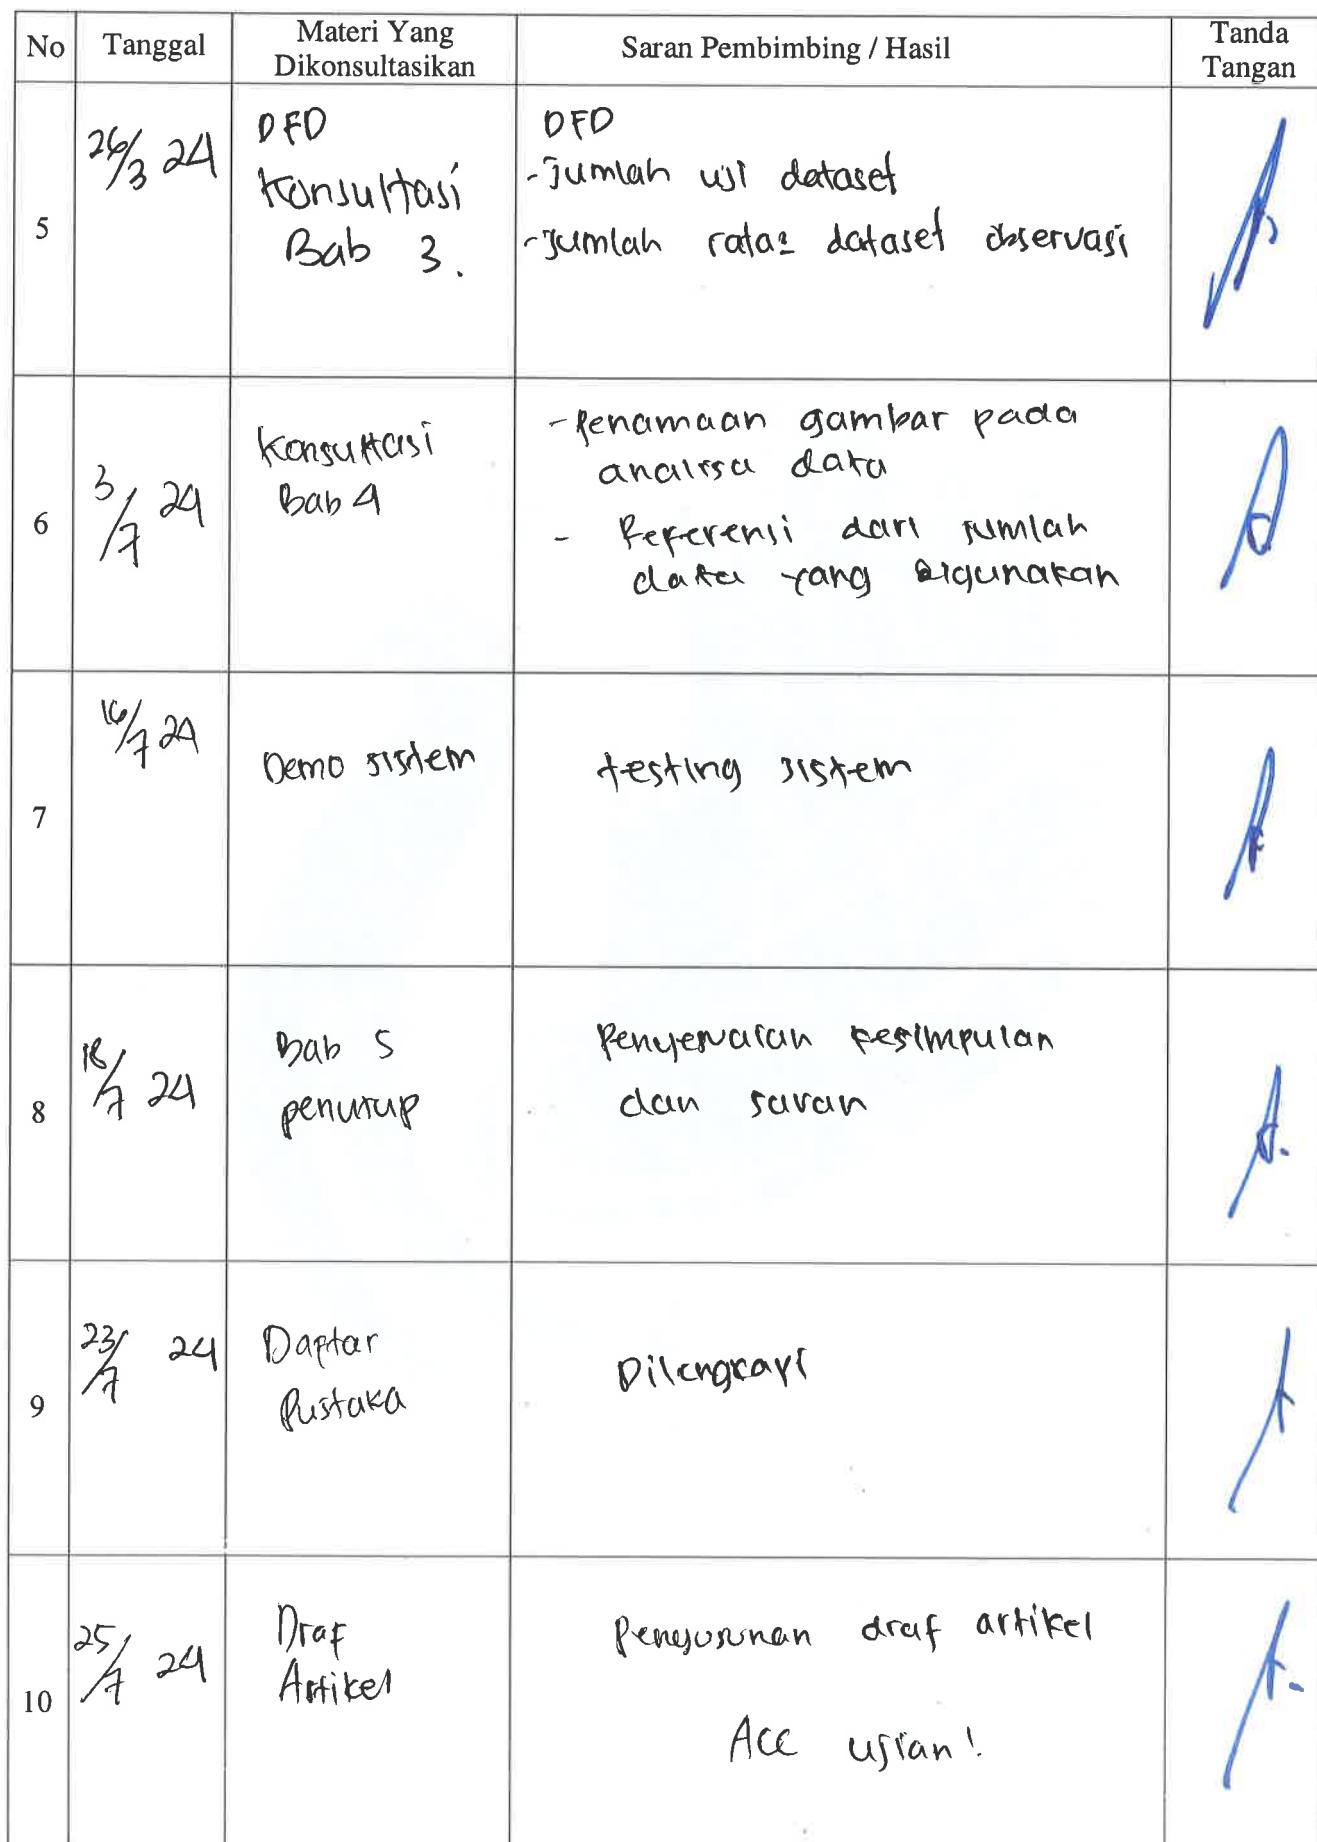 No Tanggal Materi Yang Dikonsultasikan Saran Pembimbing / Hasil Tanda Tangan
5
26/3 24
DFD
Konsultasi
Bab 3.
DFD
-Jumlah uji dataset
-Jumlah rata2 dataset observasi
6
3/7 24
Konsultasi
Bab 4
-Penamaan gambar pada
analisa data
- Referensi dari jumlah
data yang digunakan
7
16/7 24
Demo sistem
testing sistem
8
18/7 24
Bab 5
penutup
Penyesuaian kesimpulan
dan saran
9
23/7 24
Daftar
Pustaka
Dilengkapi
10
25/7 24
Draf
Artikel
Penyusunan draf artikel
Acc ujian!